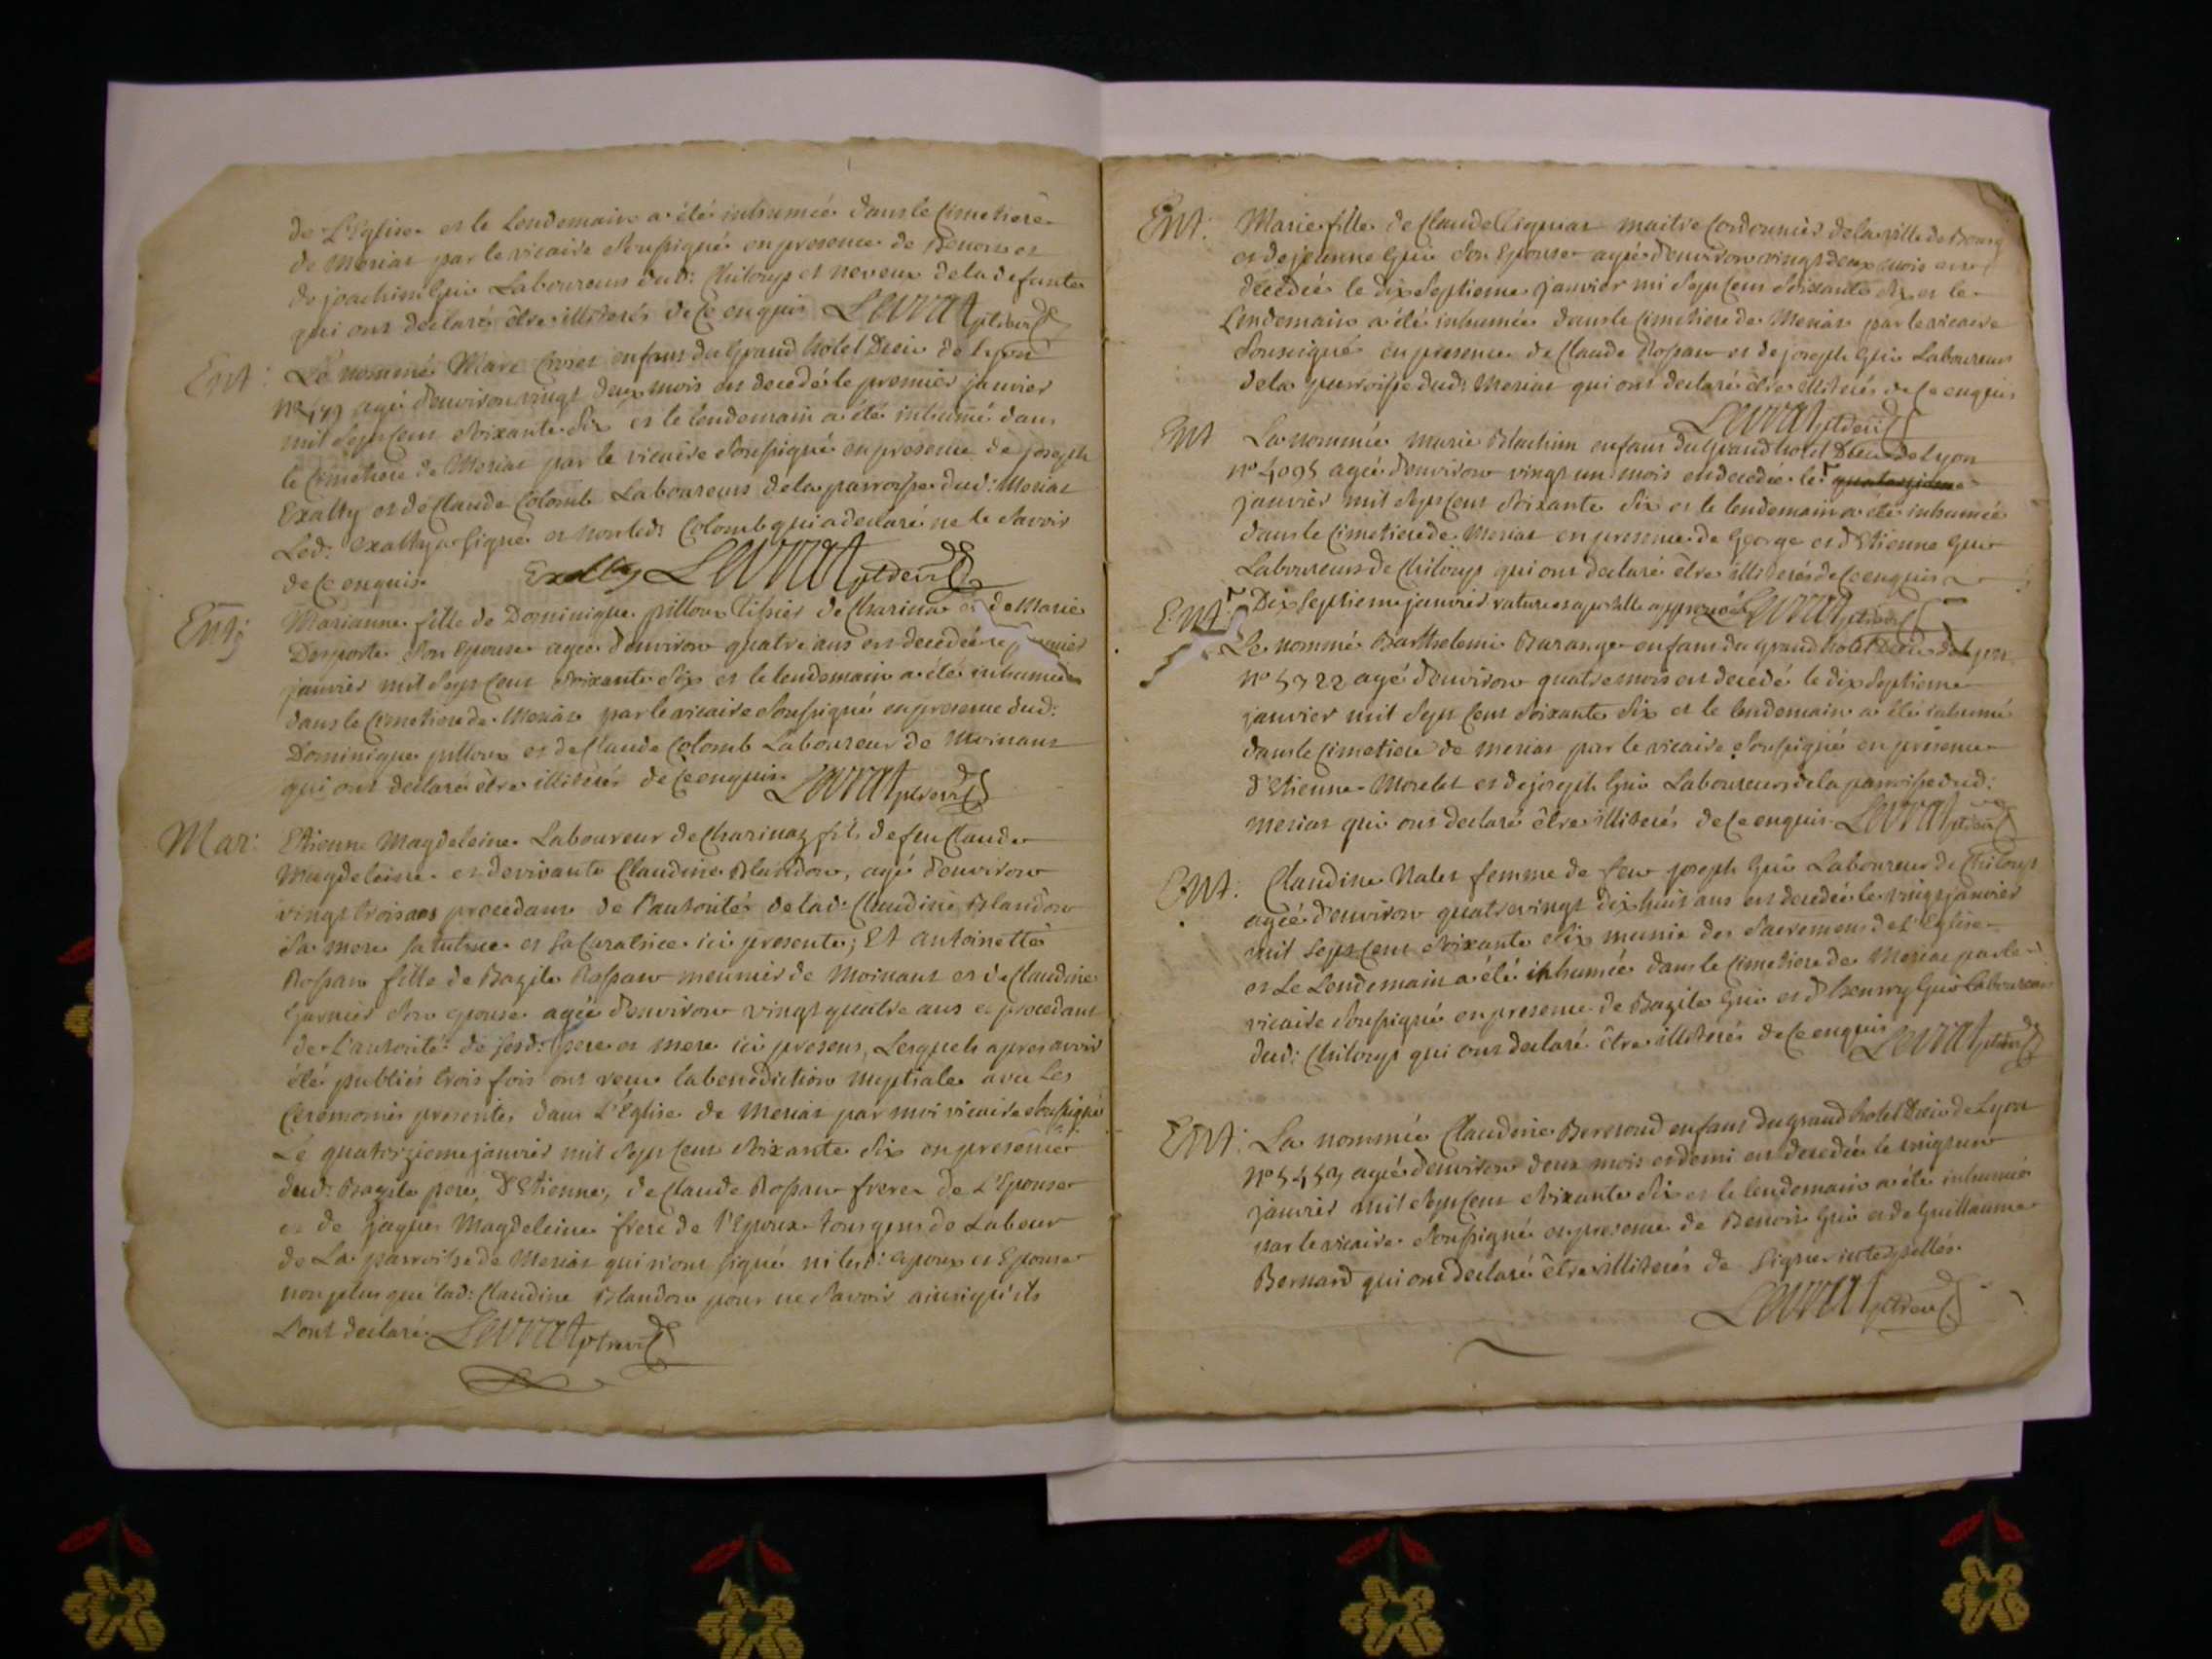 de L'Eglise et le Lendemain a été inhumée dans le Cimetiere
de Meriat par le vicaire Soussigné en presence de Benoit et
de joachim Gui Laboureurs dud: Chiloup et neveux de la defunte
qui ont declaré être illiterés de Ce enquis Levrat ptre vic
Ent: Le nommé Marc enfant du Grand hotel Dieu de Lyon
agé d'environ vingt deux mois est decedé le premier janvier
mil Sept Cent Soixante Six et le lendemain a été inhumé dans
le Cimetiere de Meriat par le vicaire Soussigné en presence de joseph
Exalty et de Claude Colomb Laboureurs de la parroisse dud: Meriat
Led: Exalty a Signé et non led: Colomb qui a declaré ne le Savoir
de Ce enquis. Exalty Levrat ptre vic
Ent: Marianne fille de Dominique pilloux Tissier de Charinas et de Marie
Desporte Son Epouse agée d'environ quatre ans est decedée le
janvier mil Sept Cent Soixante Six et le lendemain a été inhumée
dans le Cimetiere de Meriat par le vicaire Soussigné en presence dud:
Dominique pilloux et de Claude Colomb Laboureur de Moinant
qui ont declaré être illiterés de Ce enquis. Levrat ptre vic
Mar: Etienne Magdeleine Laboureur de Charinaz fils de feu Claude
Magdeleine et de vivante Claudine Blandon, agé d'environ
vingt trois ans procedant de l'autorité de lad: Claudine Blandon
Sa mere Sa tutrice et Sa Curatrice ici presente; Et Antoinette
Rossan fille de Bazile Rossan meunier de Moinant et de Claudine
Garnier Son epouse agée d'environ vingt quatre ans et procedant
de L'autorité de Sesd: pere et mere ici presens, Lesquels apres avoir
été publiés trois fois ont reçu la benediction Nuptiale avec Les
Ceremonies presentes dans L'Eglise de Meriat par moi vicaire Soussigné
Le quatorzieme janvier mil Sept Cent Soixante Six en presence
dud: Bazile pere, D'Etienne, de Claude Rossan freres de L'Epouse
et de jaques Magdeleine frere de l'Epoux tous gens de Labeur
de La parroisse de Meriat qui n'ont Signé ni lesd: epoux et Epouse
non plus que lad: Claudine Blandon pour ne Savoir ainsi qu'ils
L'ont declaré. Levrat ptre vic
Ent: Marie fille de Claude maitre Cordonnier de la ville de Bourg
et de jeanne Gui Son Epouse agée d'environ vingt deux mois est
decedée le dix Septieme janvier mil Sept Cent Soixante Six et le
Lendemain a été inhumée dans le Cimetiere de Meriat par le vicaire
Soussigné en presence de Claude Rossan et de joseph Gui Laboureurs
de la parroisse dud: Meriat qui ont declaré être illiterés de Ce enquis
Levrat ptre vic
Ent La nommée marie enfant du Grand hotel Dieu de Lyon
n° 4095 agée d'environ vingt un mois est decedée le quatorzieme
janvier mil Sept Cent Soixante Six et le lendemain a été inhumée
dans le Cimetiere de Meriat en presence de George et d'Etienne Gui
Laboureurs de Chiloup qui ont declaré être illiterés de Ce enquis
Dix Septieme janvier rature approuvée Levrat ptre vic
Ent: Le nommé Barthelemi Burange enfant du grand hotel Dieu de Lyon
n° 5722 agé d'environ quatre mois est decedé le dix Septieme
janvier mil Sept Cent Soixante Six et le lendemain a été inhumé
dans le Cimetiere de Meriat par le vicaire Soussigné en presence
d'Etienne Morelet et de joseph Gui Laboureurs de la parroisse dud:
meriat qui ont declaré être illiterés de Ce enquis. Levrat ptre vic
Ent: Claudine Nalet femme de feu joseph Gui Laboureur de Chiloup
agée d'environ quatre vingt dix huit ans est decedée le vingt janvier
mil Sept Cent Soixante Six munie des Sacremens de L'Eglise
et Le Lendemain a été inhumée dans le Cimetiere de Meriat par le
vicaire Soussigné en presence de Bazile Gui et d'henry Gui Laboureurs
dud: Chiloup qui ont declaré être illiterés de Ce enquis Levrat ptre vic
Ent: La nommée Claudine enfant du grand hotel Dieu de Lyon
n° 5459 agée d'environ deux mois et demi est decedée le vingt un
janvier mil Sept Cent Soixante Six et le lendemain a été inhumée
par le vicaire Soussigné en presence de Benoit Gui et de Guillaume
Bernard qui ont declaré être illiterés de Signer interpellés.
Levrat ptre vic